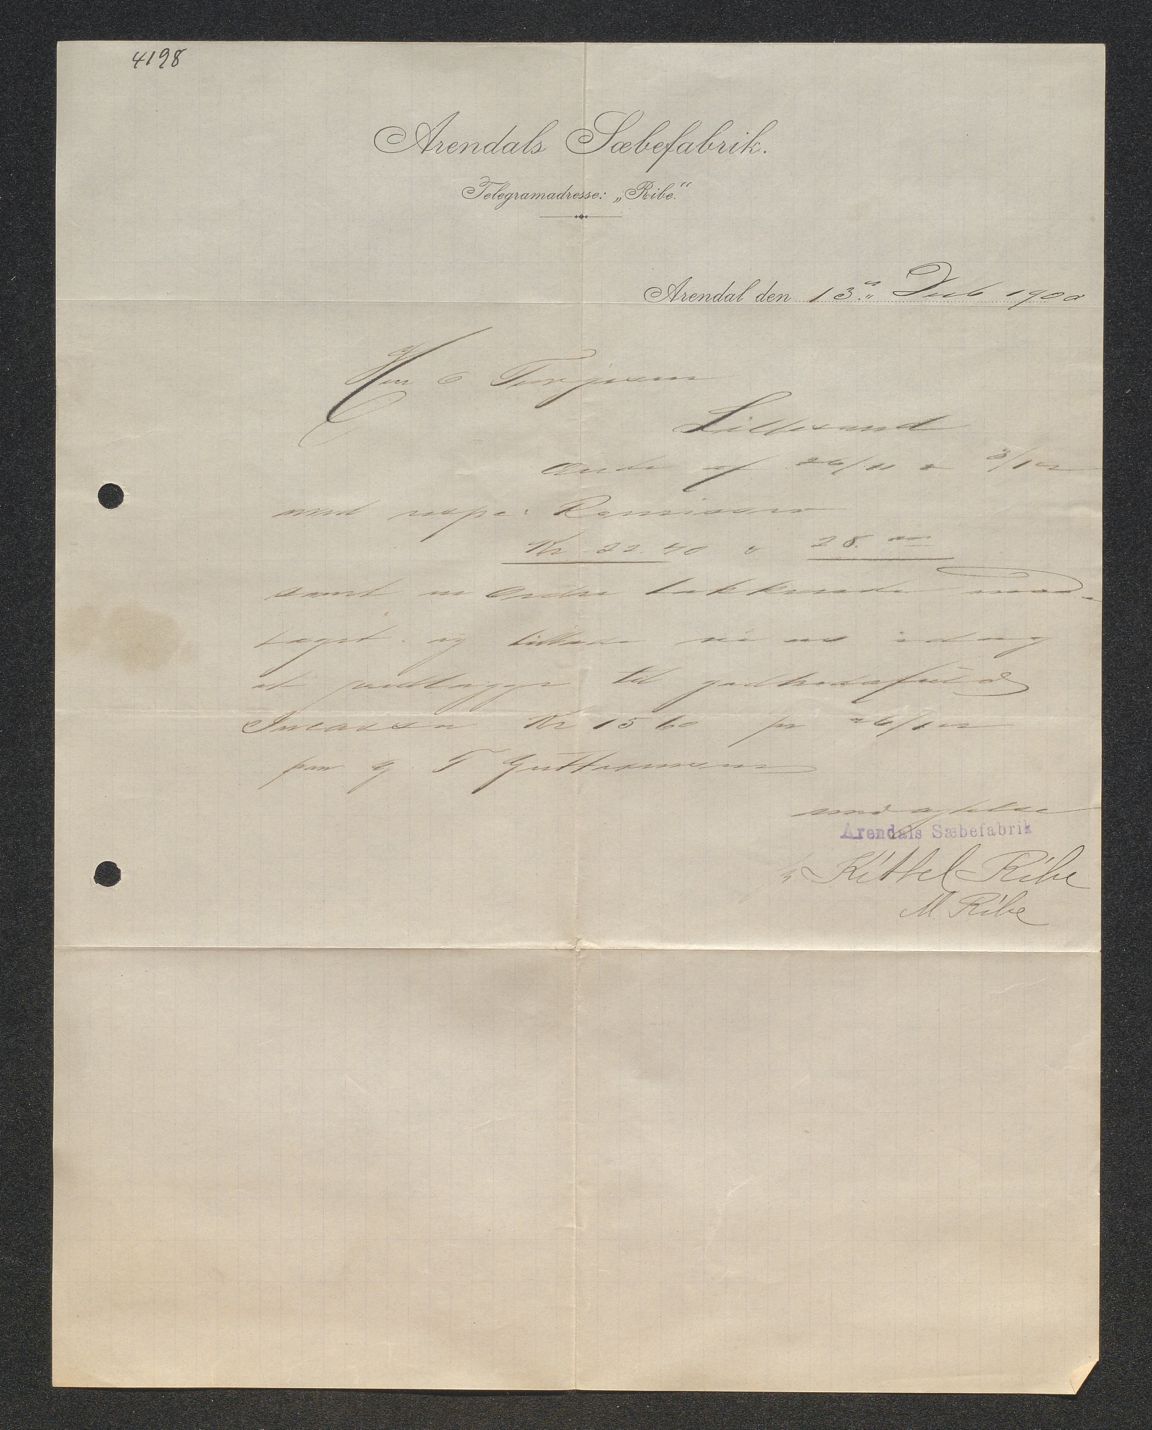 4198
Arendals Sæbefabrik.
Telegramadresse: „Ribe.“
Arendal den 13 1900
Herr Torjesen
Lillesand
Ordre af 26/11 & 3/12
med resp: Remisserer
Kr 22.40 & 28.
samt en Ordre takkende mod-
taget. og tillade vi os idag
at vedlægge til godhedsfuld
Incasso Kr 15 60 pr 26/12
paa G. T Guttormsen
med agtelse
Arendals Sæbefabrik
Kittel Ribe
M Ribe